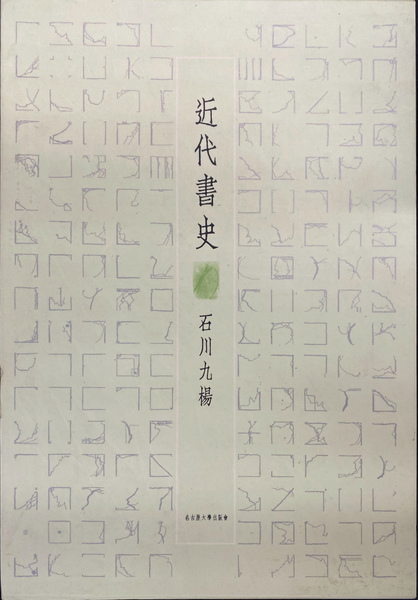 近代書史
石川九楊
名古屋大學出版會